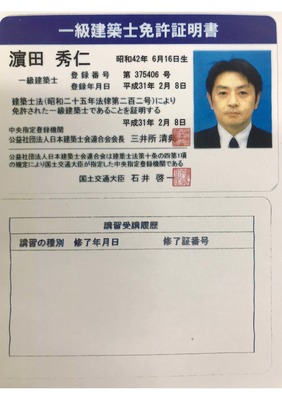 一級建築士免許証明書
濵田 秀仁 昭和42年 6月16日生
一級建築士 登録番号 第 375406 号
登録年月日 平成31年 2月 8日
建築士法(昭和二十五年法律第二百二号)により
免許された一級建築士であることを証明する
平成31年 2月 8日
中央指定登録機関
公益社団法人日本建築士会連合会会長 三井所 清典
公益社団法人日本建築士会連合会は建築士法第十条の四第1項
の規定により国土交通大臣が指定した中央指定登録機関である
国土交通大臣 石井 啓一
講習受講履歴
講習の種別 修了年月日 修了証番号